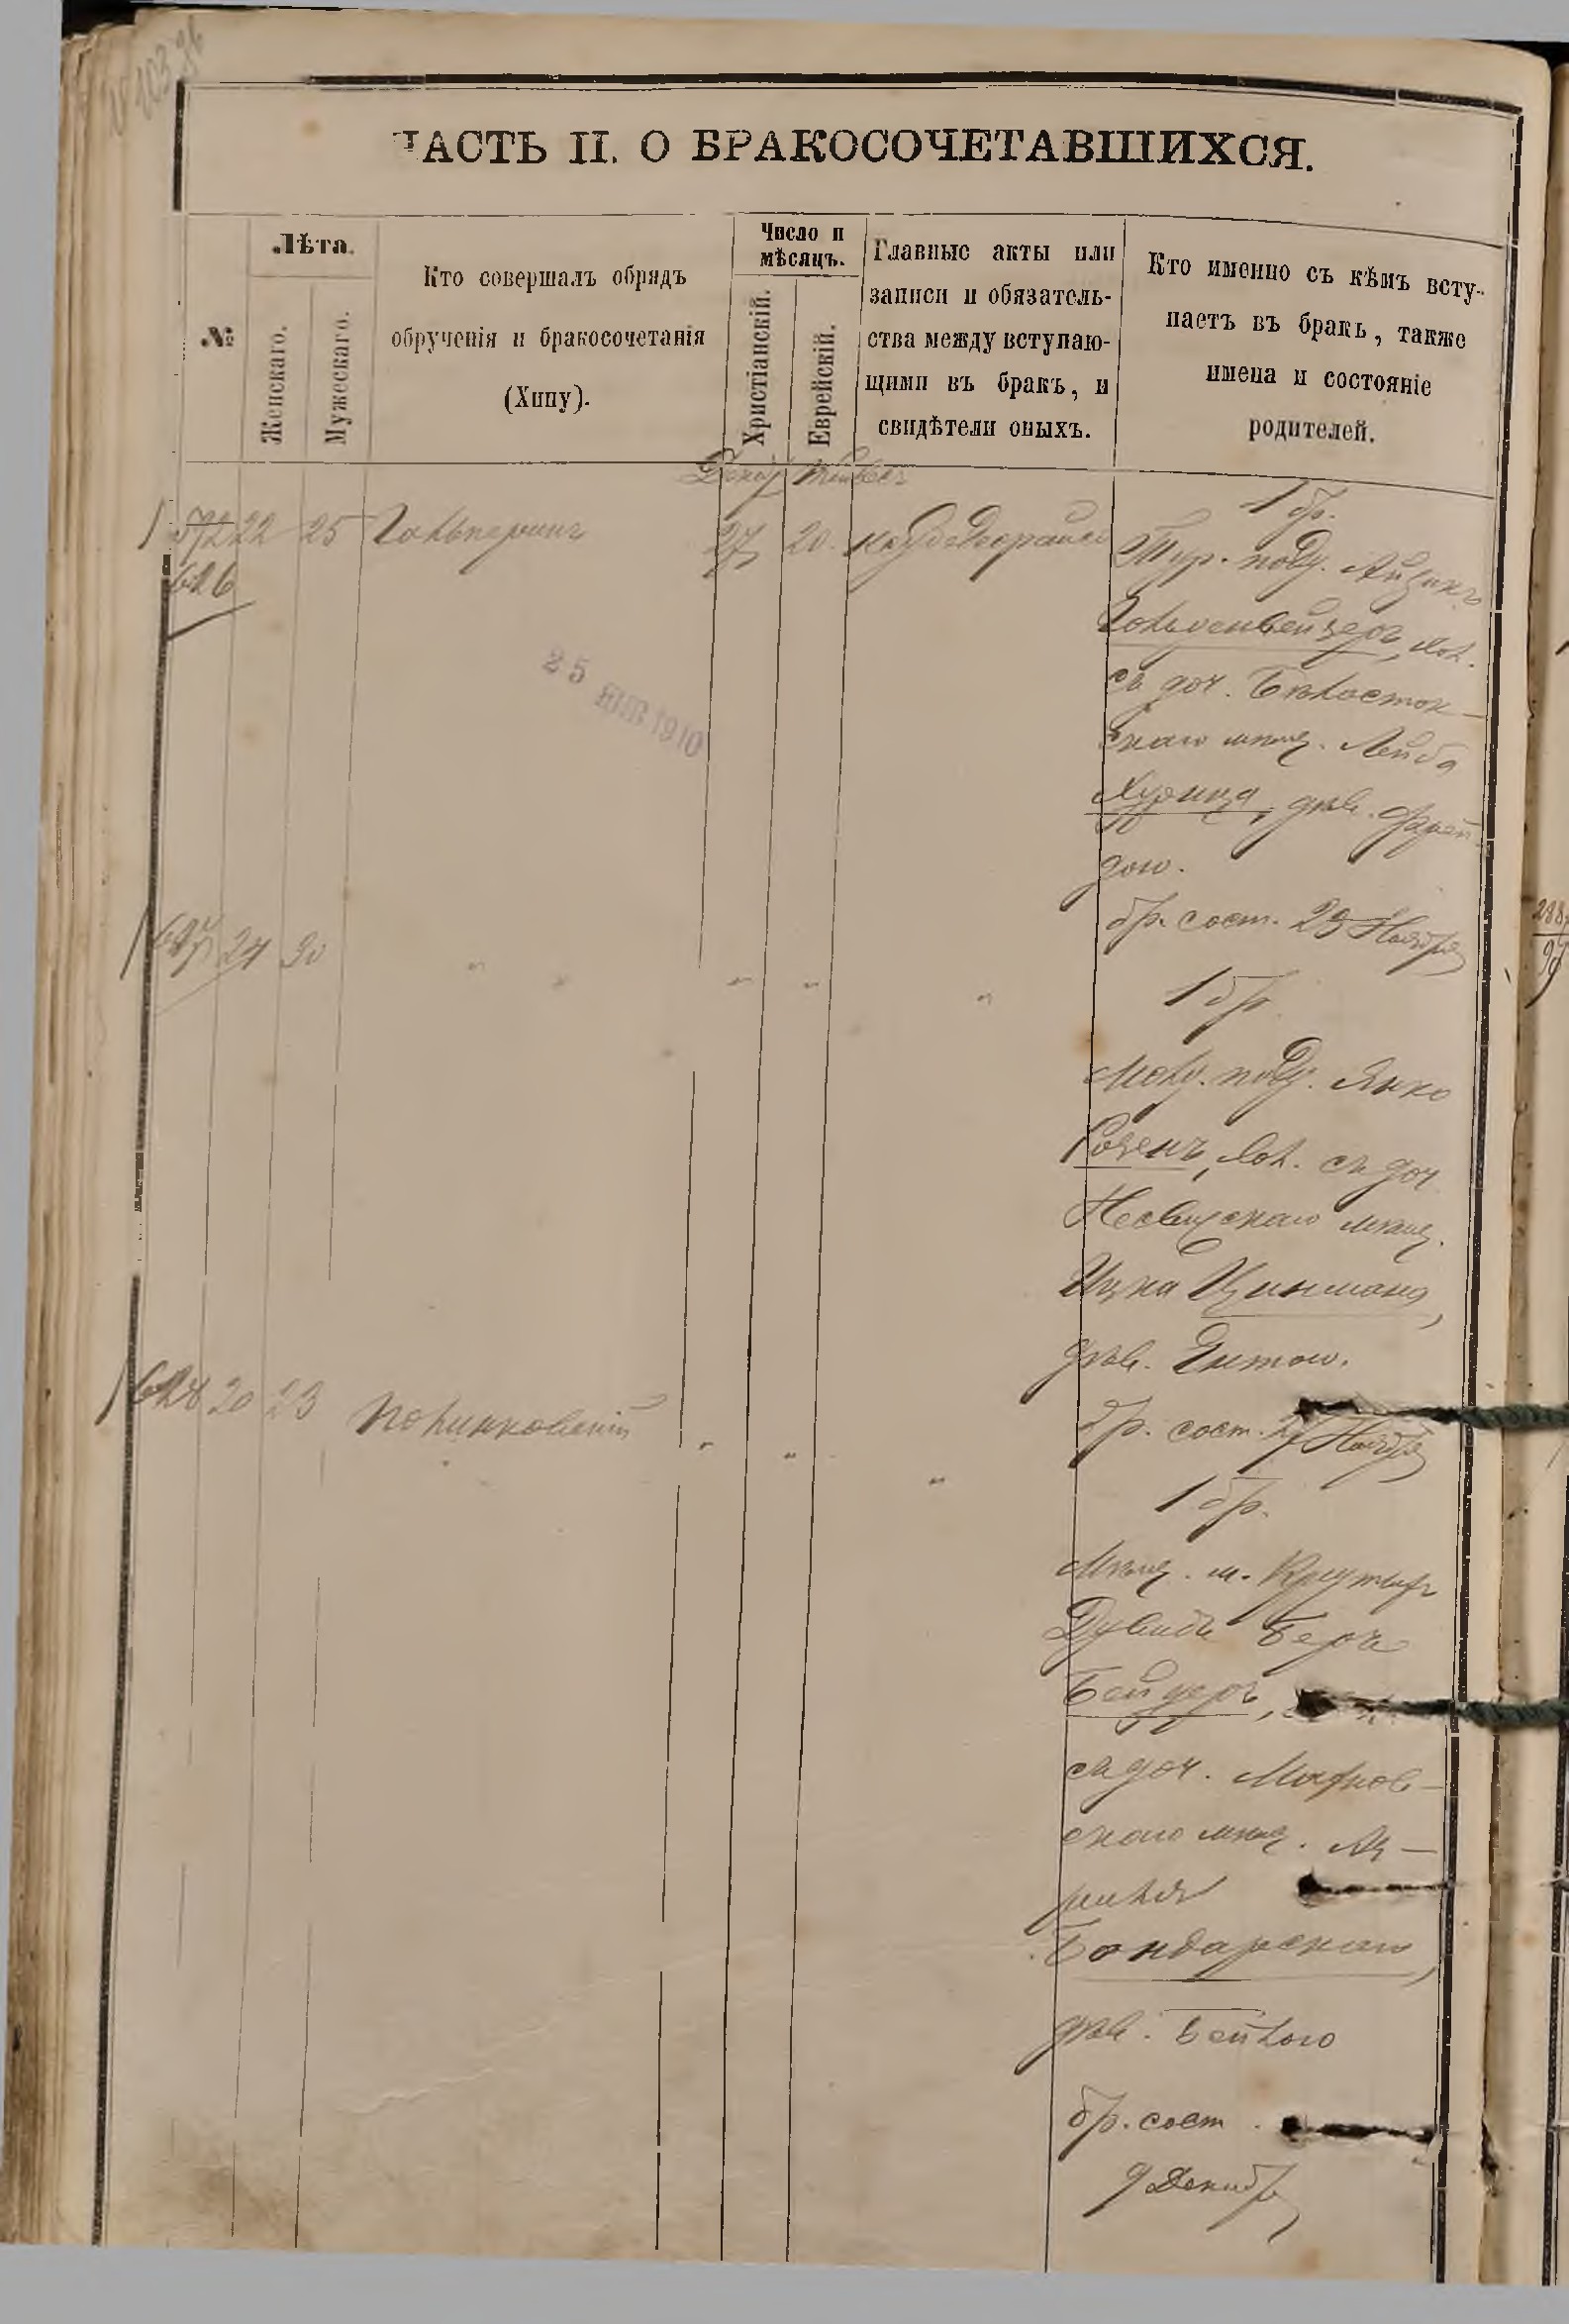 ЧАСТЬ II. О БРАКОСОЧЕТАВШИХСЯ.
№
Лѣта.
Женскаго.
Мужескаго.
Кто совершалъ обрядъ
обрученія и бракосочетанія
(Хипу).
Число и
мѣсяцъ.
Христіанскій.
Еврейскій.
Главные акты или
записи и обязатель-
ства между вступаю-
щими въ бракъ, и
свидѣтели оныхъ.
Кто именно съ кѣмъ всту-
паетъ въ бракъ, также
имена и состояніе
родителей.
Декаб
572 22 25 Гальперинъ 27 20.
626
1 бр.
Тур. подд. Айзикъ
Гольденвейзеръ, хол.
съ доч. Бѣлосток-
скаго мѣщ. Лейба
Хурица, дѣв. Фрей-
дою.
бр. сост. 23 Ноября
25 ЯНВ 1910
627 24 30 " " " " "
1 бр.
Молд. подд. Янко
Розенъ, хол. съ доч
Несвижскаго мѣщ.
Ицка Цинмана,
дѣв. Ентою.
бр. сост. 27 Ноября
628 20 23 Полинковскій " " "
1 бр.
Мѣщ. м. Крутыхъ
Дувидъ Берко
Бейдеръ,
съ доч. Махнов-
скаго мѣщ. Аз-
риля
Бондарскаго,
дѣв. Бейлою
бр. сост.
9 Декабр